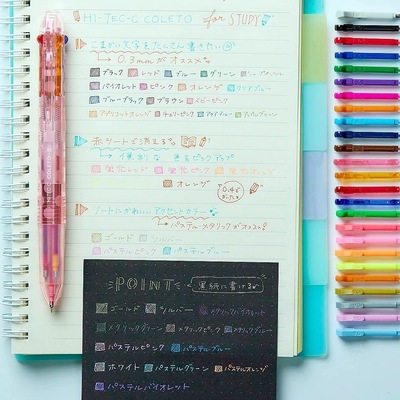 HI-TEC-C COLETO for STUDY
こまかい文字をたくさん書きたい
0.3mmがオススメ
ブラック レッド ブルー グリーン
バイオレット ピンク オレンジ クリアブルー
ブルーブラック ブラウン ベビーピンク
アプリコットオレンジ チェリーピンク アクアブルー アップルグリーン
赤シートで消える
蛍光ピンク
オレンジ
ノートにかわいいアクセントカラー
パステル・メタリックがオススメ
ゴールド シルバー
パステルピンク パステルブルー
POINT 黒紙に書ける
ゴールド シルバー メタリックバイオレット
メタリックグリーン メタリックピンク メタリックブルー
パステルピンク パステルブルー
ホワイト パステルグリーン パステルオレンジ
パステルバイオレット